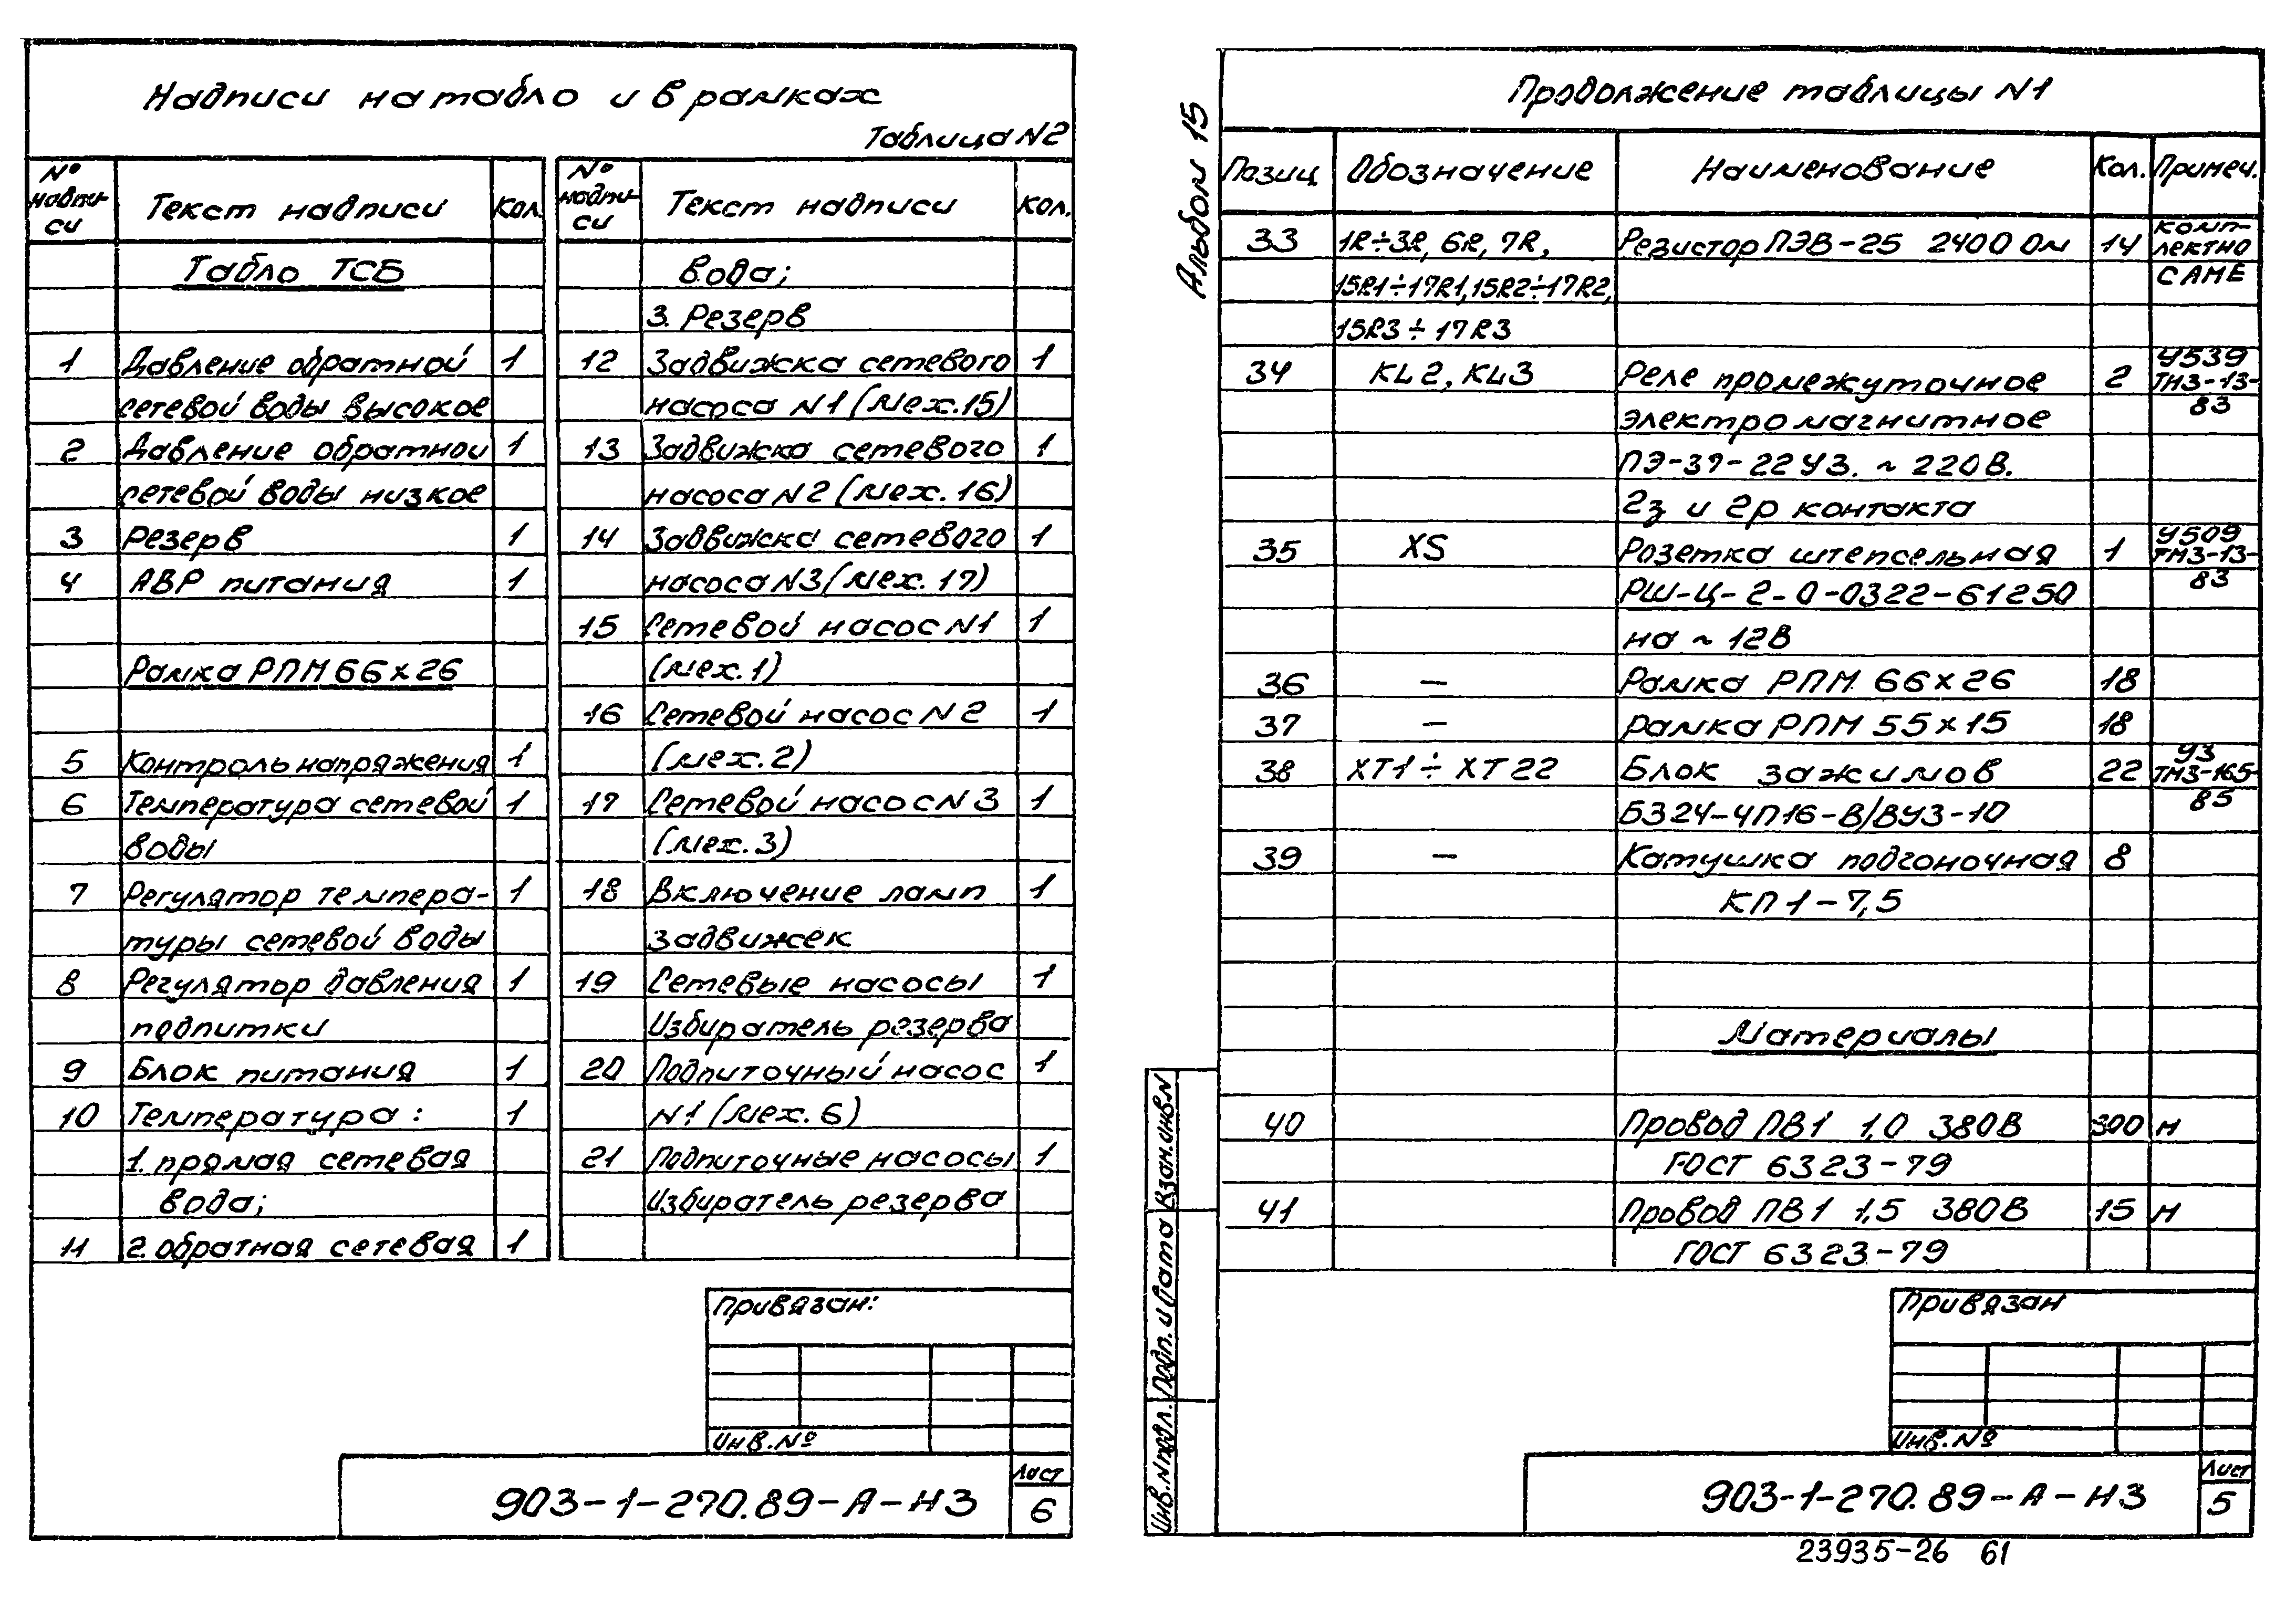 Надписи на табло и в рамках
Таблица N2
№ надпи-си Текст надписи Кол.
Табло ТСБ
1 Давление обратной 1
сетевой воды высокое
2 Давление обратной 1
сетевой воды низкое
3 Резерв 1
4 АВР питания 1
Рамка РПМ 66×26
5 Контроль напряжения 1
6 Температура сетевой 1
воды
7 Регулятор темпера- 1
туры сетевой воды
8 Регулятор давления 1
подпитки
9 Блок питания 1
10 Температура: 1
1. прямая сетевая
вода;
11 2. обратная сетевая 1
№ надпи-си Текст надписи Кол.
вода;
3. Резерв
12 Задвижка сетевого 1
насоса N1 (мех.15)
13 Задвижка сетевого 1
насоса N2 (мех. 16)
14 Задвижка сетевого 1
насоса N3 (мех. 17)
15 Сетевой насос N1 1
(мех. 1)
16 Сетевой насос N2 1
(мех. 2)
17 Сетевой насос N3 1
(мех. 3)
18 Включение ламп 1
задвижек
19 Сетевые насосы 1
Избиратель резерва
20 Подпиточный насос 1
N1 (мех. 6)
21 Подпиточные насосы 1
Избиратель резерва
Привязан:
Инв. №
903-1-270.89-А-НЗ
Лист
6
Альбом 15
Продолжение таблицы N1
Позиц Обозначение Наименование Кол. Примеч.
33 1R÷3R, 6R, 7R, Резистор ПЭВ-25 2400 Ом 14 комп-лектно
15R1÷17R1, 15R2÷17R2, САМЕ
15R3÷17R3
34 KL2, KL3 Реле промежуточное 2 У539 ТМ3-13-
электромагнитное 83
ПЭ-37-22У3. ~ 220В.
2з и 2р контакта
35 XS Розетка штепсельная 1 У509 ТМ3-13-
РШ-Ц-2-0-0322-61250 83
на ~ 12В
36 — Рамка РПМ 66×26 18
37 — Рамка РПМ 55×15 18
38 XT1÷XT22 Блок зажимов 22 У3 ТМ3-165-
БЗ24-4П16-В/ВУ3-10 85
39 — Катушка подгоночная 8
КП1-7,5
Материалы
40 Провод ПВ1 1,0 380В 300 м
ГОСТ 6323-79
41 Провод ПВ1 1,5 380В 15 м
ГОСТ 6323-79
Взам. инв. N
Подп. и дата
Инв. N подл.
Привязан
Инв. №
903-1-270.89-А-НЗ
Лист
5
23935-26 61